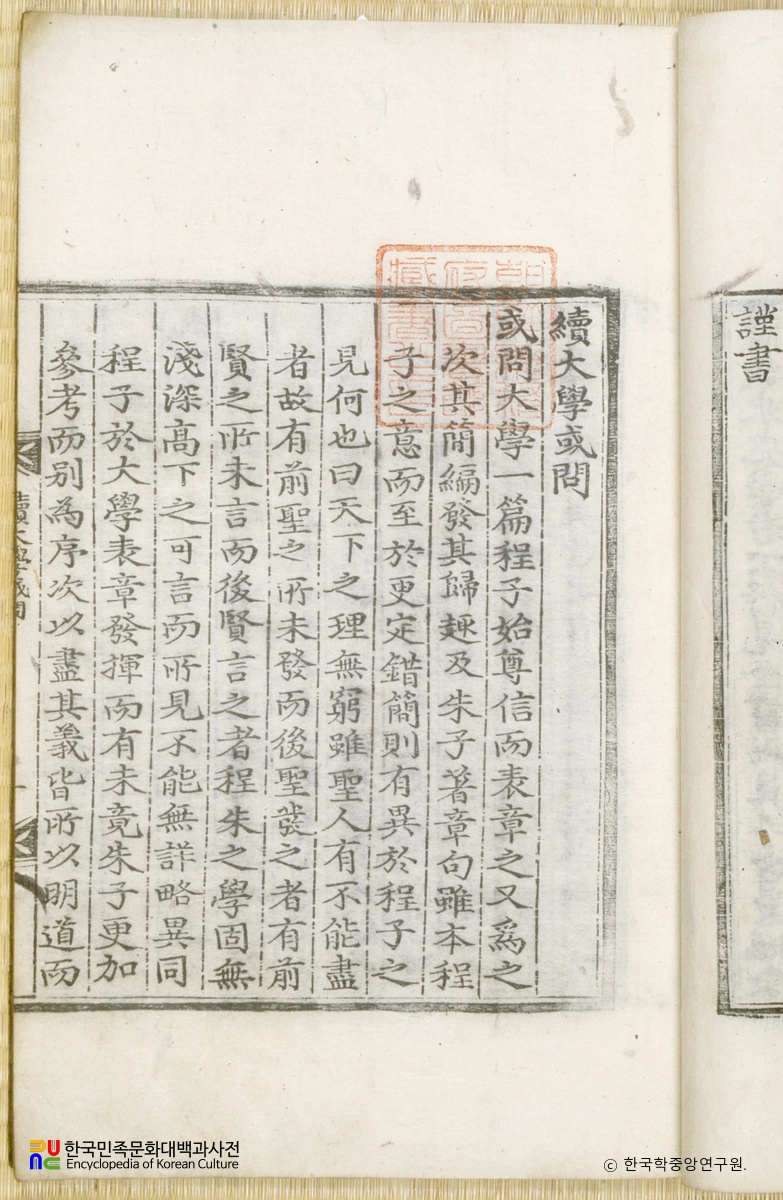 謹書
續大學或問
或問大學一篇程子始尊信而表章之又爲之
次其簡編發其歸趣及朱子著章句雖本程
子之意而至於更定錯簡則有異於程子之
見何也曰天下之理無窮雖聖人有不能盡
者故有前聖之所未發而後聖發之者有前
賢之所未言而後賢言之者程朱之學固無
淺深高下之可言而所見不能無詳略異同
程子於大學表章發揮而有未竟朱子更加
參考而别為序次以盡其義皆所以明道而
續大學或問
한국민족문화대백과사전
Encyclopedia of Korean Culture
ⓒ 한국학중앙연구원.